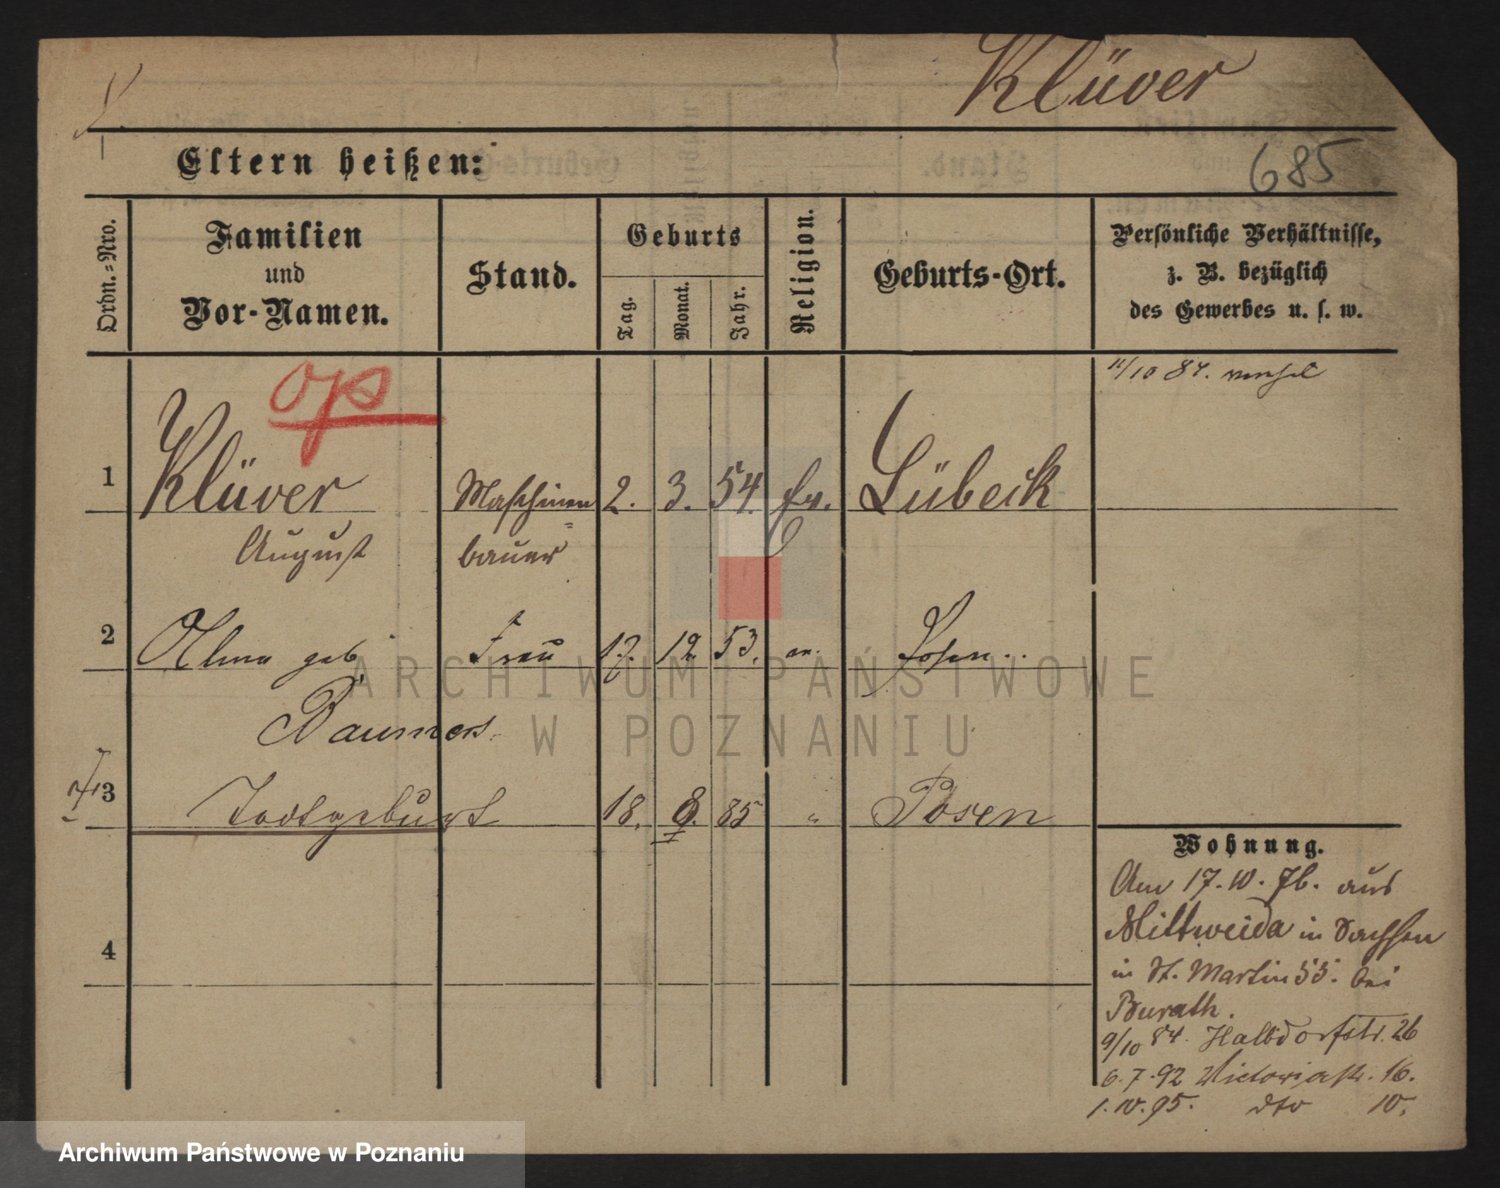 Klüver
685
Eltern heißen:
Ordn.=Nro.
Familien
und
Vor-Namen.
Stand.
Geburts
Tag.
Monat.
Jahr.
Religion.
Geburts-Ort.
Persönliche Verhältnisse,
z. B. bezüglich
des Gewerbes u. s. w.
11/10 84.
1 Klüver Maschinen= 2. 3. 54. ev. Lübeck
August bauer
2 Alma geb Frau 17. 12. 53. ev. Posen
3 Todtgeburt 18. 8. 85 " Posen
4
Wohnung.
Am 17.10.76. aus
Mittweida in Sachsen
in St. Martin 55. bei
Burath.
9/10 84. Halbdorfstr. 26
6.7.92 Victoriastr. 16.
1.10.95. dto 10.
ARCHIWUM PAŃSTWOWE
W POZNANIU
Archiwum Państwowe w Poznaniu